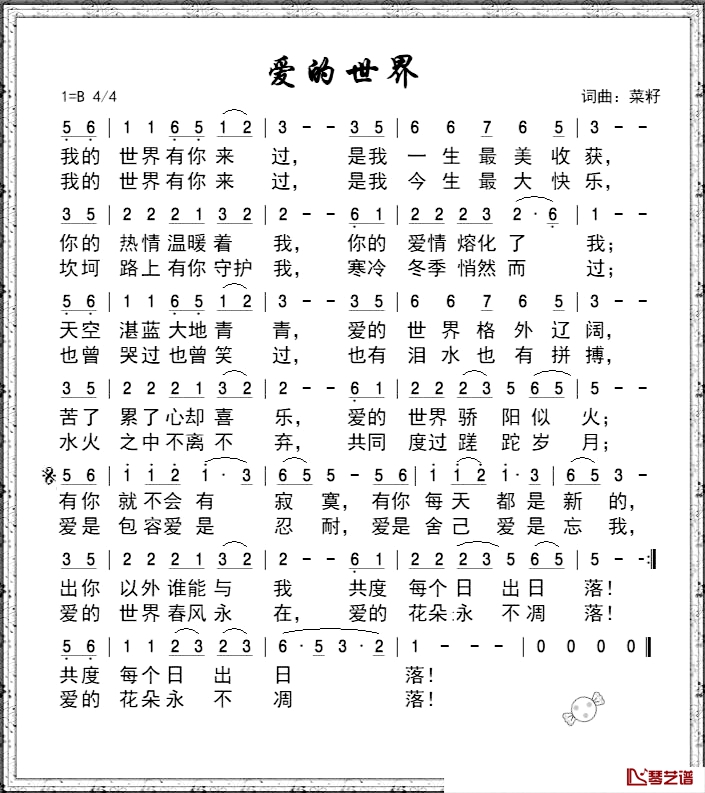 爱的世界
1=B 4/4 词曲：菜籽
5 6 | 1 1 6 5 1 2 | 3 - - 3 5 | 6 6 7 6 5 | 3 - -
我的 世界有你来 过， 是我 一生最美收获，
我的 世界有你来 过， 是我 今生最大快乐，
3 5 | 2 2 2 1 3 2 | 2 - - 6 1 | 2 2 2 3 2 · 6 | 1 - -
你的 热情温暖着 我， 你的 爱情熔化了 我；
坎坷 路上有你守护 我， 寒冷 冬季悄然而 过；
5 6 | 1 1 6 5 1 2 | 3 - - 3 5 | 6 6 7 6 5 | 3 - -
天空 湛蓝大地青 青， 爱的 世界格外辽阔，
也曾 哭过也曾笑 过， 也有 泪水也有拼搏，
3 5 | 2 2 2 1 3 2 | 2 - - 6 1 | 2 2 2 3 5 6 5 | 5 - -
苦了 累了心却喜 乐， 爱的 世界骄阳似 火；
水火 之中不离不 弃， 共同 度过蹉跎岁 月；
5 6 | 1 1 2 1 · 3 | 6 5 5 - 5 6 | 1 1 2 1 · 3 | 6 5 3 -
有你 就不会有 寂 寞， 有你 每天 都是新 的，
爱是 包容爱是 忍 耐， 爱是 舍己 爱是忘 我，
3 5 | 2 2 2 1 3 2 | 2 - - 6 1 | 2 2 2 3 5 6 5 | 5 - - :||
出你 以外谁能与 我 共度 每个日 出日 落！
爱的 世界春风永 在， 爱的 花朵永 不凋 落！
5 6 | 1 1 2 3 2 3 | 6 · 5 3 · 2 | 1 - - - | 0 0 0 0 ||
共度 每个日 出 日 落！
爱的 花朵永 不 凋 落！
琴艺谱